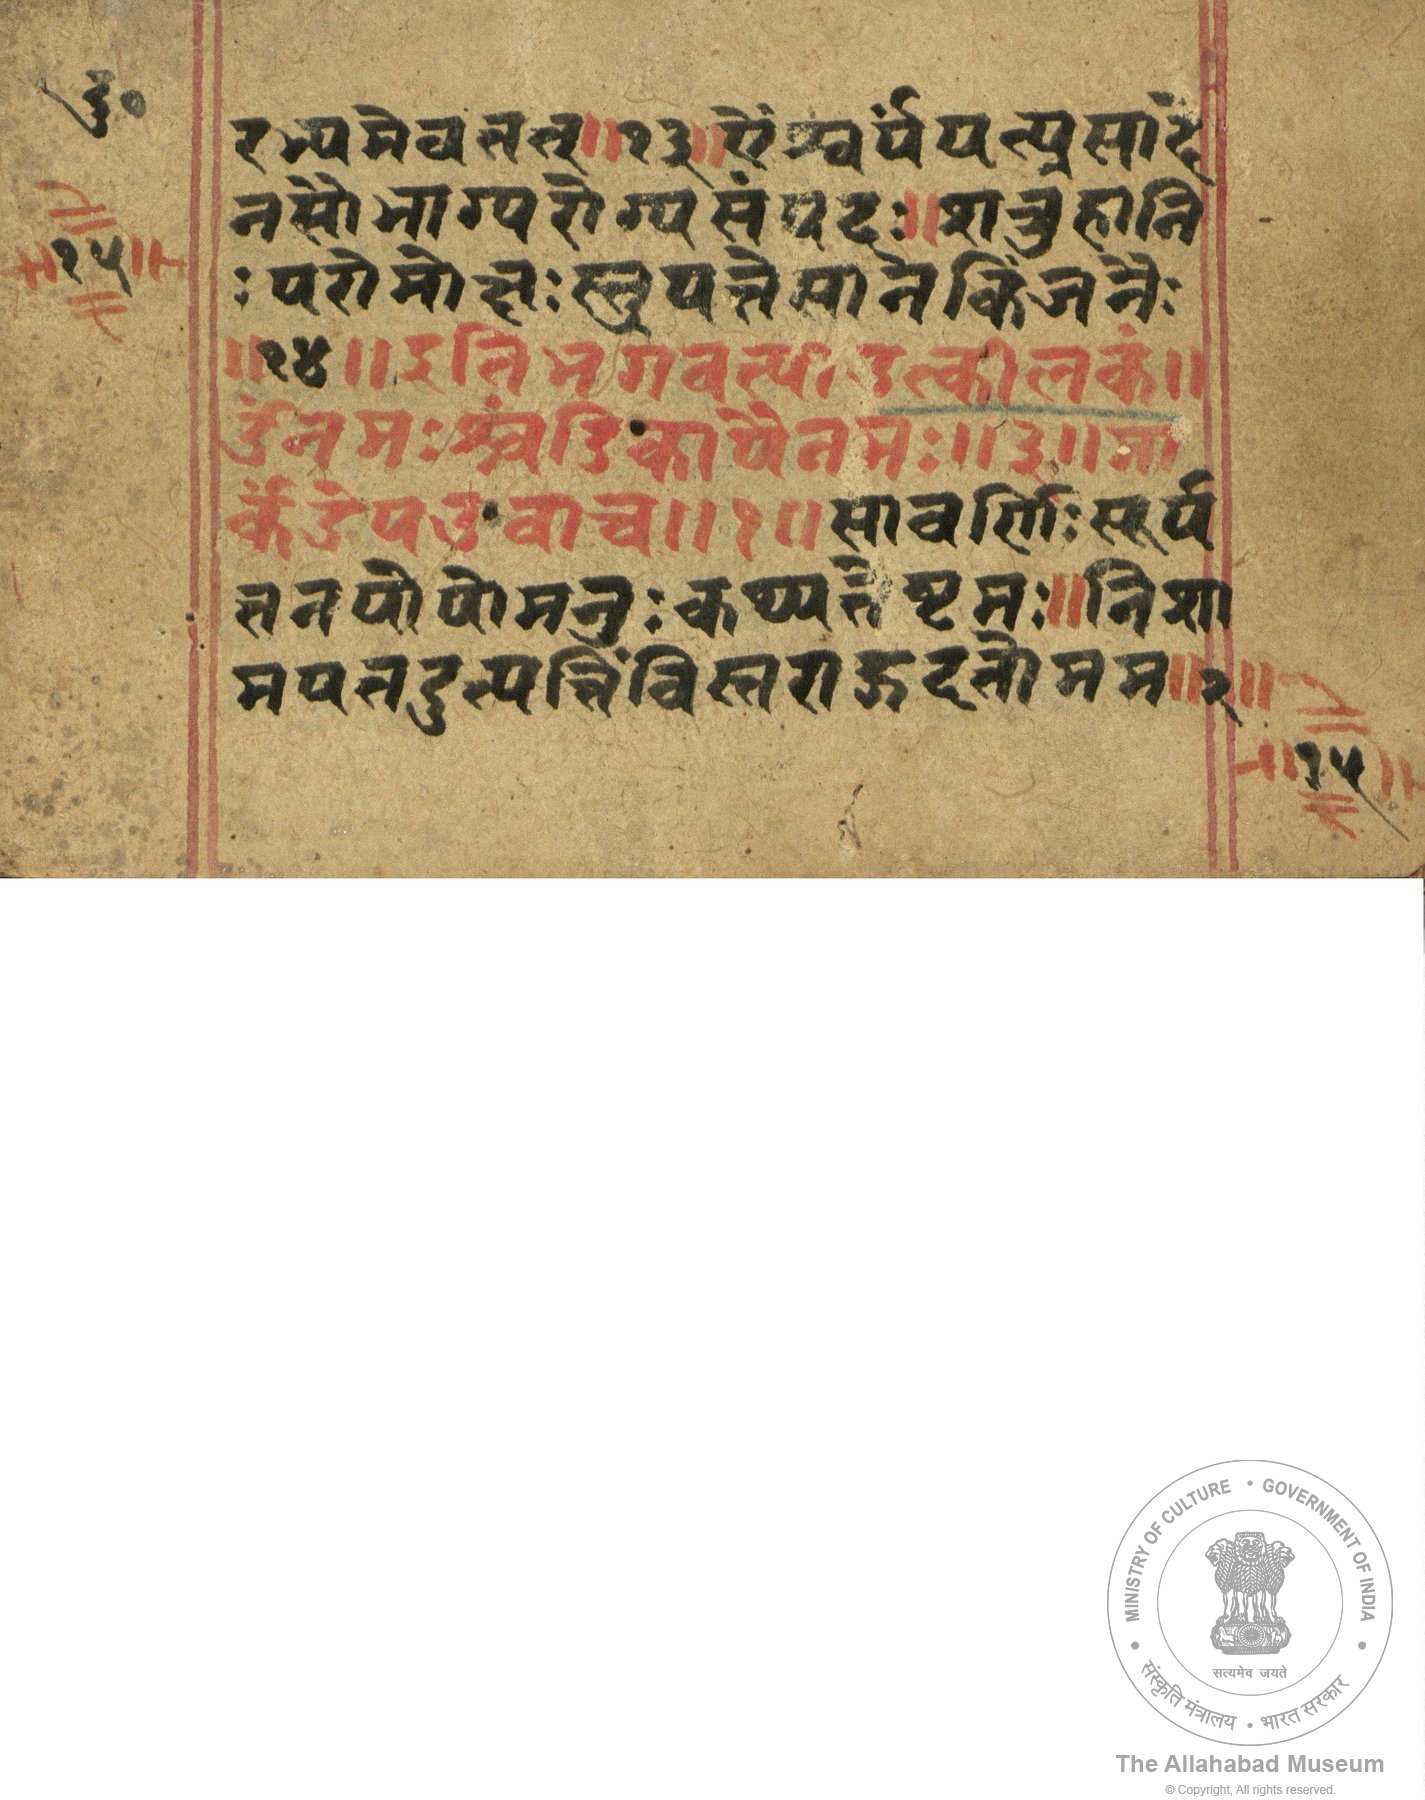 दु०
रभ्यमेवतत्॥१३॥ऐंश्वर्यंयत्प्रसादे
नसौभाग्यरोग्यसंपदः॥शत्रुहानि
॥१५॥
ःपरोमोक्षःस्तुयत्तेसानकिंजनैः
॥१४॥इतिभगवत्या कीलकं॥
उंनमःश्चंडिकायैनमः॥३॥मा
र्कंडेयउवाच॥१॥सावर्णिःसूर्य
तनयोयोमनुःकथ्यतेष्टमः॥निशा
मयतदुत्पत्तिंविस्तराद्गदतोमम॥२॥
॥१५॥
MINISTRY OF CULTURE • GOVERNMENT OF INDIA
सत्यमेव जयते
संस्कृति मंत्रालय • भारत सरकार
The Allahabad Museum
© Copyright, All rights reserved.